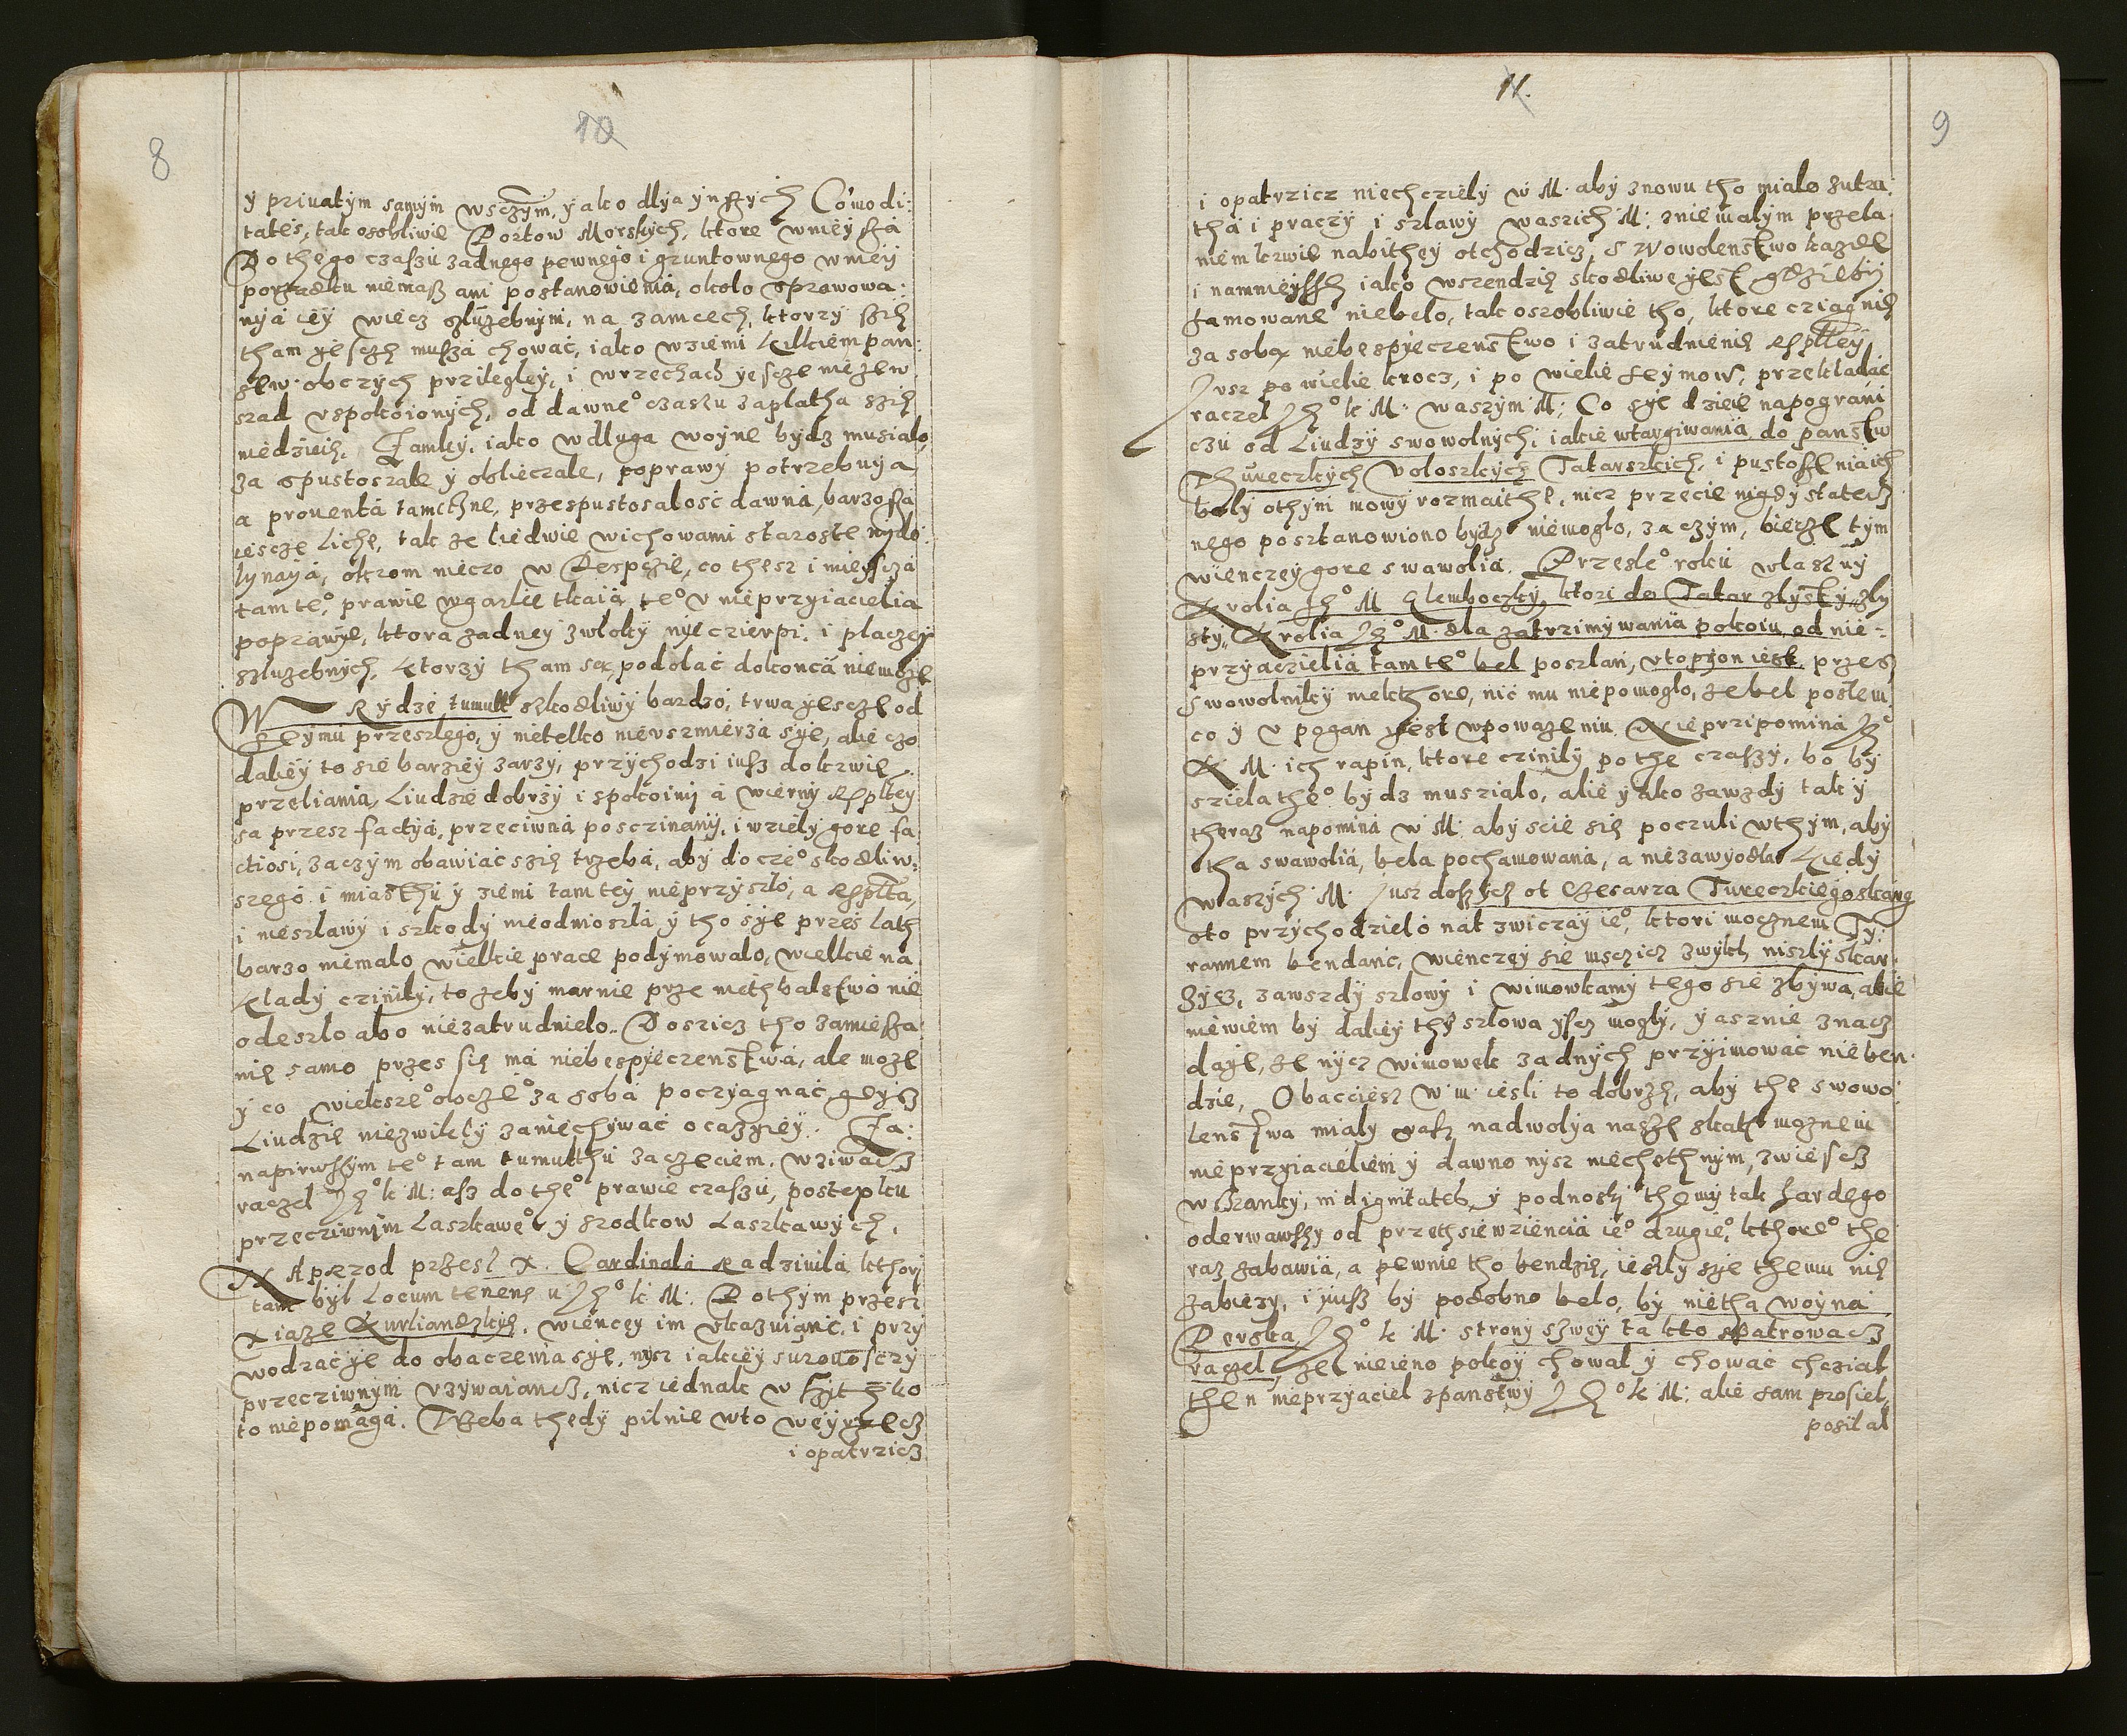 8
10
ÿ priuatÿm samÿm wsczÿm, ÿako dlÿa ÿnſzÿch Co̅modi:
tates, tak osobliwie Portow Morskÿch, ktore wnieÿ ſzą
Do thego czaſzu zadnego pewnego i gruntownego wnieÿ
porzadku niemaſz ani postanowienia, okolo oprawowa:
nÿa ieÿ wiecz sluzebnÿmi, na zamcech, ktorzÿ szię
tham ÿeſczę muſzą chowac, iako wziemi kilkiem pan:
stw obczÿch prziległeÿ, i wrzechach ÿeſcze nie zew
szad vspokoionÿch, od dawne° czaszu zaplatha szię
niedzieie. Zamkÿ, iako wdługa woÿne bÿdz musialo,
za opustoszale ÿ oblieczale, poprawÿ potrzebuÿa
a prouenta tamecżne, przespustosalosc dawna, barzo są
iescze liche, tak ze liedwie wichowami staroste wÿdo:
lÿnaÿa, okrom nieczo w Derpczie, co thesz i mieÿſcza
tam te° prawie wgarlie tkaia te° v nieprzÿiacielia
poprawÿe, ktora zadneÿ zwlokÿ nÿe czierpi, i placzeÿ
szluzebnÿch, ktorzÿ tham są, podolac dokonca niemoze
W Rÿdze tumult szkodliwÿ bardzo, trwa ÿescze od
seÿmu przeszlego, ÿ nietelko nievszmierza sÿe, alie czo
dalieÿ to sie barzieÿ zarzÿ, przÿchodzi iuſz dokrwie
przeliania, Liudzie dobrzÿ i spokoini a wiernÿ Rſpltej
sa przesz factÿa, przeciwna posczinanÿ, i wzielÿ gore fa
ctiosi, zaczÿm obawiac szię trzeba, abÿ do cze° skodliw=
szego i miasthu ÿ ziemi tamteÿ nieprzÿszlo, a Rſplta,
i niesławÿ i szkodÿ nieodniosla ÿ tho sÿe przes lath
barzo niemalo wielkie prace podÿmowalo, wielkie na
kladÿ czinilÿ, to zebÿ marnie prze niethbalstwo nie
odeszlo abo niezatrudnielo. Dosicz tho zamiesza
nie samo przes się ma niebespieczenstwa, ale moze
ÿ co wieksze° obcze° za soba poczÿagnac, gdÿsz
Liudzie niezwiklÿ zaniechÿwac ocazÿieÿ. Za:
napirwſzÿm te° tam tumulthu zaczeciem, wziwacz
raczel J° k M: aſz do the° prawie czaſzu, postepku
przecziwnÿm Laszkawe° ÿ srodkow Laszkawÿch.
Naprzod przesz X. Cardinala Radziwila kthorÿ
tam bÿl Locum tenens u J° k M: Pothÿm przesz
Xiaze Kurliandzkÿe, wiencey im vkazuianc, i przÿ
wodzacÿe do obaczenia sÿe, nisz iakieÿ surowosczÿ
przecziwnÿm vzÿwaiancz, nicz iednak wszitÿko
to niepomaga. Trzeba thedÿ pilnie wto weÿrzecz
i opatrzicz
11.
9
i opatrzicz niechczielÿ w M. abÿ znowu tho mialo zutra:
tha i praczÿ i szlawÿ waszich M: zniemalÿm przela
niem krwie nabitheÿ otchodzicz. Swowolenstwo kazde
i namnieÿſſze iako wszendzie skodliwe ÿest gdziebÿ
hamowane niebelo, tak oszobliwie tho, ktore cziagnie
za sobą niebespieczenstwo i zatrudnienie Rſpltey
Jusz po wielie krocz, i po wielie seÿmow, przekladac
raczel J° k M: waszÿm M: Co sÿe dzieie napograni
czu od Liudzÿ swowolnÿch; iakie wtargiwania do panstw
Thureczkÿch Voloszkÿch Tatarszkich, i pustoszenia ich
belÿ othÿm mowÿ rozmaithe, nicz przecie nigdÿ statecz
nego posztanowiono bÿdz niemoglo, zaczÿm, bierze tÿm
wienczeÿ gore swawolia. Przesle° roku vlasznÿ
Krolia J° M Glemboczkÿ, ktori do Tatar zlÿstÿ zlÿ
stÿ, Krolia J° M. dla zatrzimÿwania pokoiu od nie=
przÿacielia tamte° bel poszlan, vtopion iest przesz
swowolnikÿ niekthore, nic mu niepomoglo, ze bel poslem,
co ÿ v pogan ÿest wpowazeniu. Nieprzipomina J°
K M. ich rapin, ktore czinilÿ po the czaszÿ, bo bÿ
sziela the° bÿdz musialo, alie ÿako zawzdÿ tak ÿ
theraz napomina w M. abÿscie się poczuli wthÿm, abÿ
tha swawolia, bela pochamowana, a niezawÿodla kiedÿ
waszÿch M. Jusz dosÿcz ot Czesarza Tureczkiego skarg
oto przÿchodzielo nat zwiczaÿ ie°, ktori mocznem Tÿ:
rannem bendanc, wienczeÿ sie msczicz zwÿkl, niszlÿ skar
zÿcz, zawszdÿ szlowÿ i wimowkamÿ tego sie zbÿwa, alie
niewiem bÿ dalieÿ thÿ szlowa ÿſcz moglÿ, ÿasznie znacz
daÿe, ze nÿcz wimowek zadnÿch przÿimowac nieben:
dzie, Obacciesz w m. iesli to dobrze, abÿ the swowo
lenstwa mialÿ nasz nadwolÿa naſze skazk moznem
nieprzÿiacieliem ÿ dawno nÿsz niechethnÿm, zwieſcz
wszankÿ, in dignitates ÿ podnoski themÿ tak hardego
oderwawſzÿ od przethsiewziencia ie° drugie°, kthore° the
raz zabawia, a pewnie tho bendzie, iesli sÿe themu nie
zabiezÿ, i iuſz bÿ podobno belo, bÿ nietha woÿna
Perska J° k M: stronÿ szweÿ ta kto opatrowacz
raczel, ze nieieno pokoÿ chowal ÿ chowac chczial
then nieprzÿaciel zpanstwÿ J° k M: alie sam prosiel,
posilal